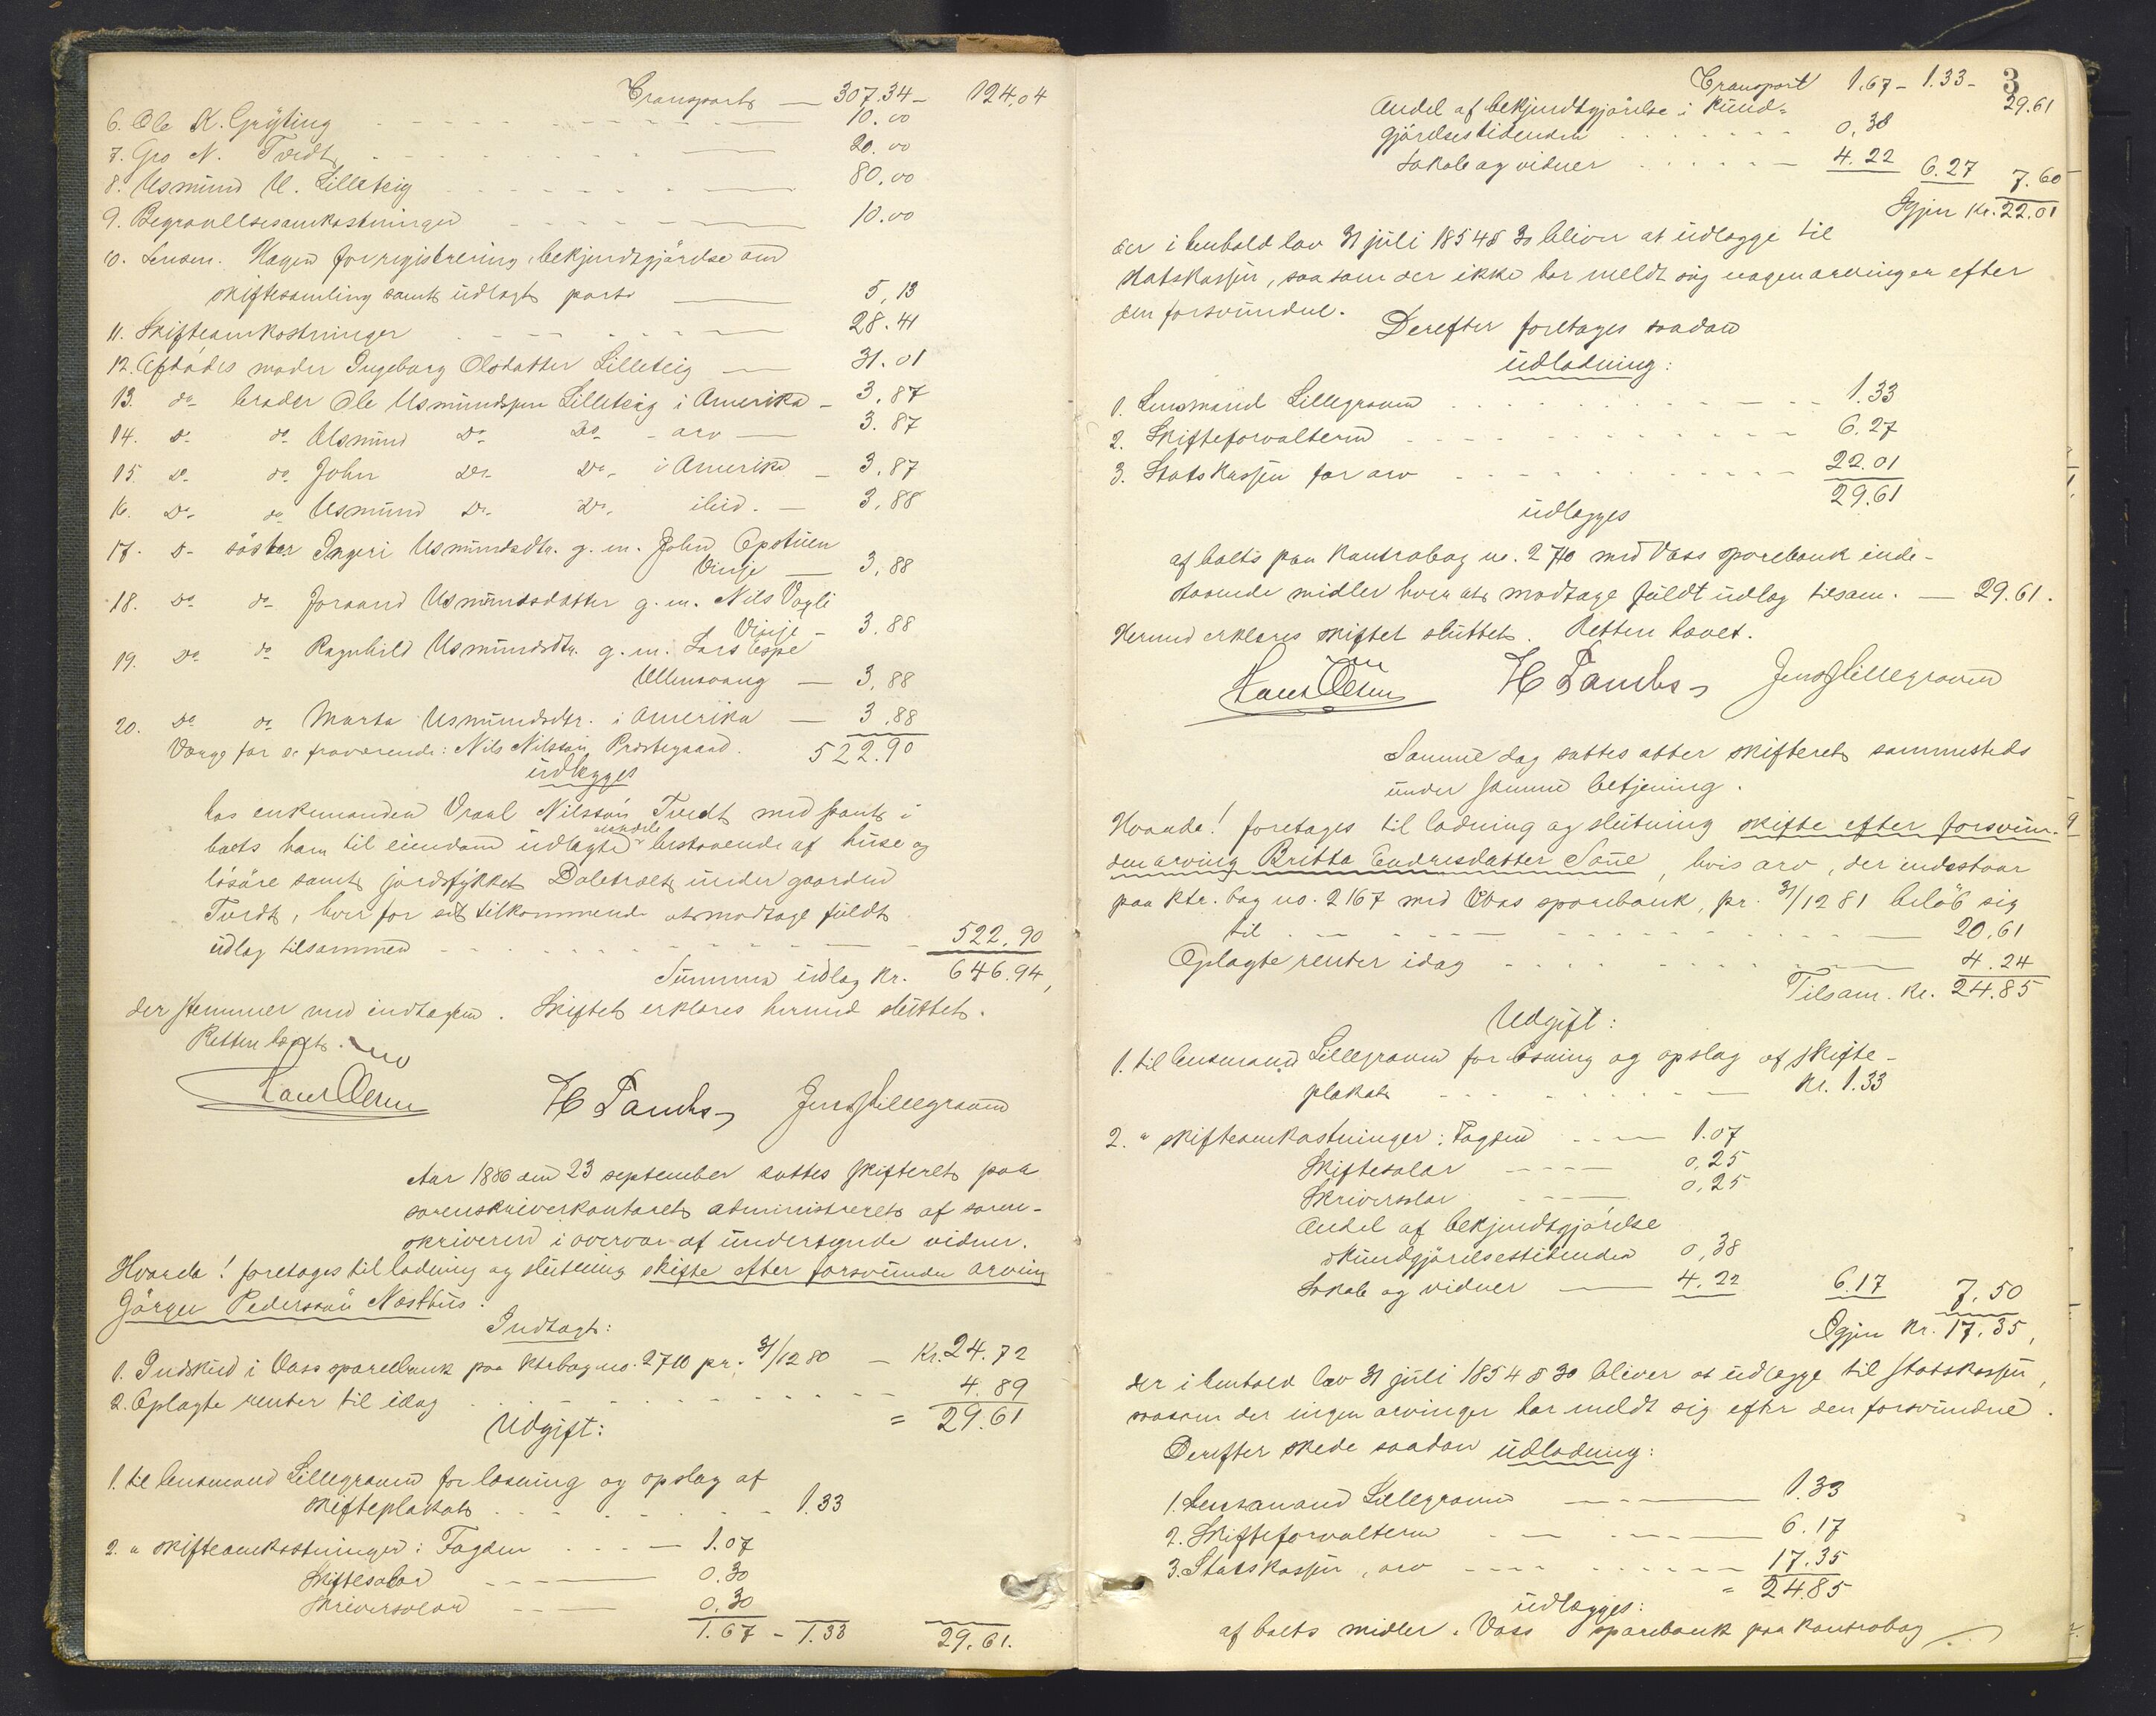 Transport — 307.34 – 124,04
6. Ole K. Gryting — 10.00
7. Gro N. Tvedt — 20.00
8. Usmund U. Lilleteig — 80,00
9. Begravelsesomkostninger — 10.00
10. Lensm. Hagen for registrering, bekjendtgjørelse om
skiftesamling samt udlagt porto — 5,13
11. Skifteomkostninger — 28.41
12. Afdødes moder Ingeborg Olsdatter Lilleteig — 31.01
13. do broder Ole Usmundsøn Lilleteig i Amerika – 3,87
14. do do Aamund do do – arv — 3.87
15. do do John do do i Amerika – 3,87
16. do do Usmund do do ibid. — 3,88
17. do søster Ingeri Usmundsdtr. g. m. John Opstuen
Vinje — 3,88
18. do do Joraand Usmundsdatter g. m. Nils Vagli
Vinje – 3.88
19. do do Ragnhild Usmundsdtr. g. m. Lars Espe
Ullensvang — 3,88
20. do do Marta Usmundsdtr. i Amerika — 3.88
Værge for de fraværende: Nils Nilssøn Prestegaard. 522.90
udlægges
hos enkemanden Nilssøn Tvedt med pant i
boets ham til eiendom udlagte eiendele bestaaende af huse og
løsøre samt jordstykket Daletræet under gaarden
Tvedt, hver for sit tilkommende at modtage fuldt
udlæg tilsammen — 522.90
Summa udlæg Kr. 646.94,
der stemmer med indtægten. Skiftet erklæres hermed sluttet.
Retten hævet.
H Tambs Jens Lillegraven
Aar 1886 den 23 september sattes skifteret paa
sorenskriverkontoret administreret af soren-
skriveren i overvær af undertegnede vidner.
Hvorda! foretages til lodning og slutning skifte efter forsvunden arving
Jørgen Pederssøn Næsthus.
Indtægt:
1. Indskud i Voss sparebank paa ktrbog no. 2710 pr. 31/12 80 — Kr. 24.72
2. Oplagte renter til idag — 4.89
= 29.61
Udgift:
1. til lensmand Lillegraven for læsning og opslag af
skifteplakat — 1.33
2. " skifteomkostninger: Fogden — 1.07
Skiftesalær — 0.30
Skriversalær — 0.30
1.67 – 1.33 29.61.
3
Transport 1.67 – 1.33 – 29.61
Andel af bekjendtgjørelse i Kund-
gjørelsestidenden — 0,38
Lokale og vidner — 4.22 6.27 7.60
Igjen Kr. 22.01
der i henhold lov 31 juli 1854 § 30 bliver at udlægge til
Statskassen, saasom der ikke har meldt sig nogen arvinger efter
den forsvundne.
Derefter foretages saadan
udlodning:
1. Lensmand Lillegraven — 1.33
2. Skifteforvalteren — 6.27
3. Statskassen for arv — 22.01
29.61
udlægges
af boets paa Kontrabog no. 2710 med Voss sparebank inde-
staaende midler hver at modtage fuldt udlæg tilsam. — 29.61.
Hermed erklæres skiftet sluttet. Retten hævet.
H Tambs Jens Lillegraven
Samme dag sattes atter skifteret sammesteds
under samme betjening.
Hvorda! foretages til lodning og slutning skifte efter forsvun-
den arving Britta Endresdatter Sone, hvis arv, der indestaar
paa ktr. bog no. 2167 med Voss sparebank, pr. 31/12 81 beløb sig
til — 20,61
Oplagte renter idag — 4.24
Tilsam. Kr. 24.85
Udgift:
1. til lensmand Lillegraven for læsning og opslag af skifte-
plakat — Kr. 1.33
2. " skifteomkostninger: Fogden — 1.07
Skiftesalær — 0,25
Skriversalær — 0,25
Andel af bekjendtgjørelse
i Kundgjørelsestidenden 0,38
Lokale og vidner — 4.22 6.17 7.50
Igjen Kr. 17.35,
der i henhold lov 31 juli 1854 § 30 bliver at udlægge til statskassen,
saasom der ingen arvinger har meldt sig efter den forsvundne.
Derefter skede saadan udlodning:
1. Lensmand Lillegraven — 1.33
2. Skifteforvalteren — 6.17
3. Statskassen, arv — 17.35
= 24.85
udlægges:
af boets midler i Voss sparebank paa kontrabog